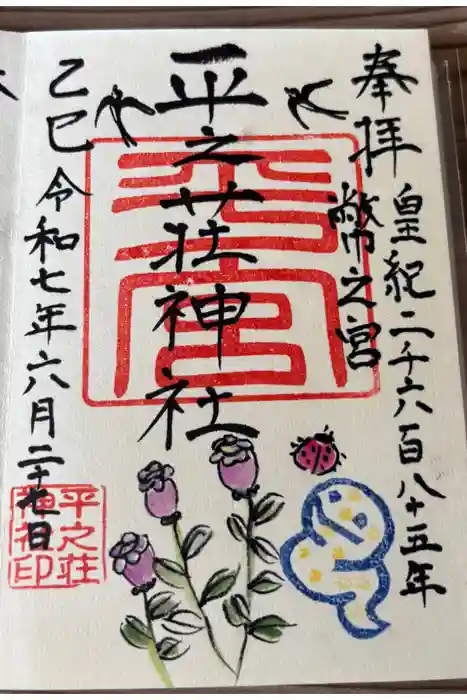 奉拝
皇紀二千六百八十五年
幣之宮
平之荘神社
乙巳
令和七年六月二十七日
平之荘
神社印